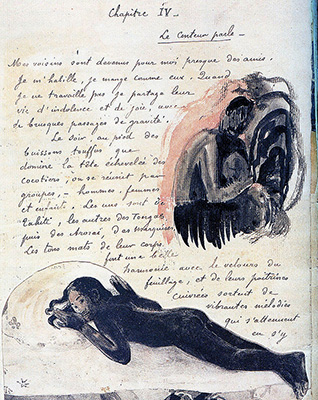 Chapitre IV —
Le Conteur parle —
Mes voisins sont devenus pour moi presque des amis.
Je m'habille, je mange comme eux. Quand
je ne travaille pas, je partage leur
vie d'indolence et de joie, avec
de brusques passages de gravité.
Le soir, au pied des
buissons touffus que
domine la tête échevelée des
cocotiers, on se réunit par
groupes, — hommes, femmes
et enfants. Les uns sont de
Tahiti, les autres des Tongas,
puis des Arorai, des Marquises.
Les tons mats de leur corps
font une belle
harmonie avec le velours du
feuillage, et de leurs poitrines
cuivrées sortent de
vibrantes mélodies
qui s'atténuent
en s'y